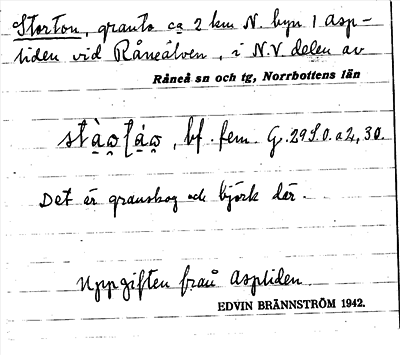 Storton, granto ca 2 km N. byn i Asp-
liden vid Råneälven, i N.V. delen av
Råneå sn och tg, Norrbottens län
bf. fem. G. 29 S.O. a 2, 30.
Det är granskog och björk där.
Uppgiften från Aspliden
EDVIN BRÄNNSTRÖM 1942.